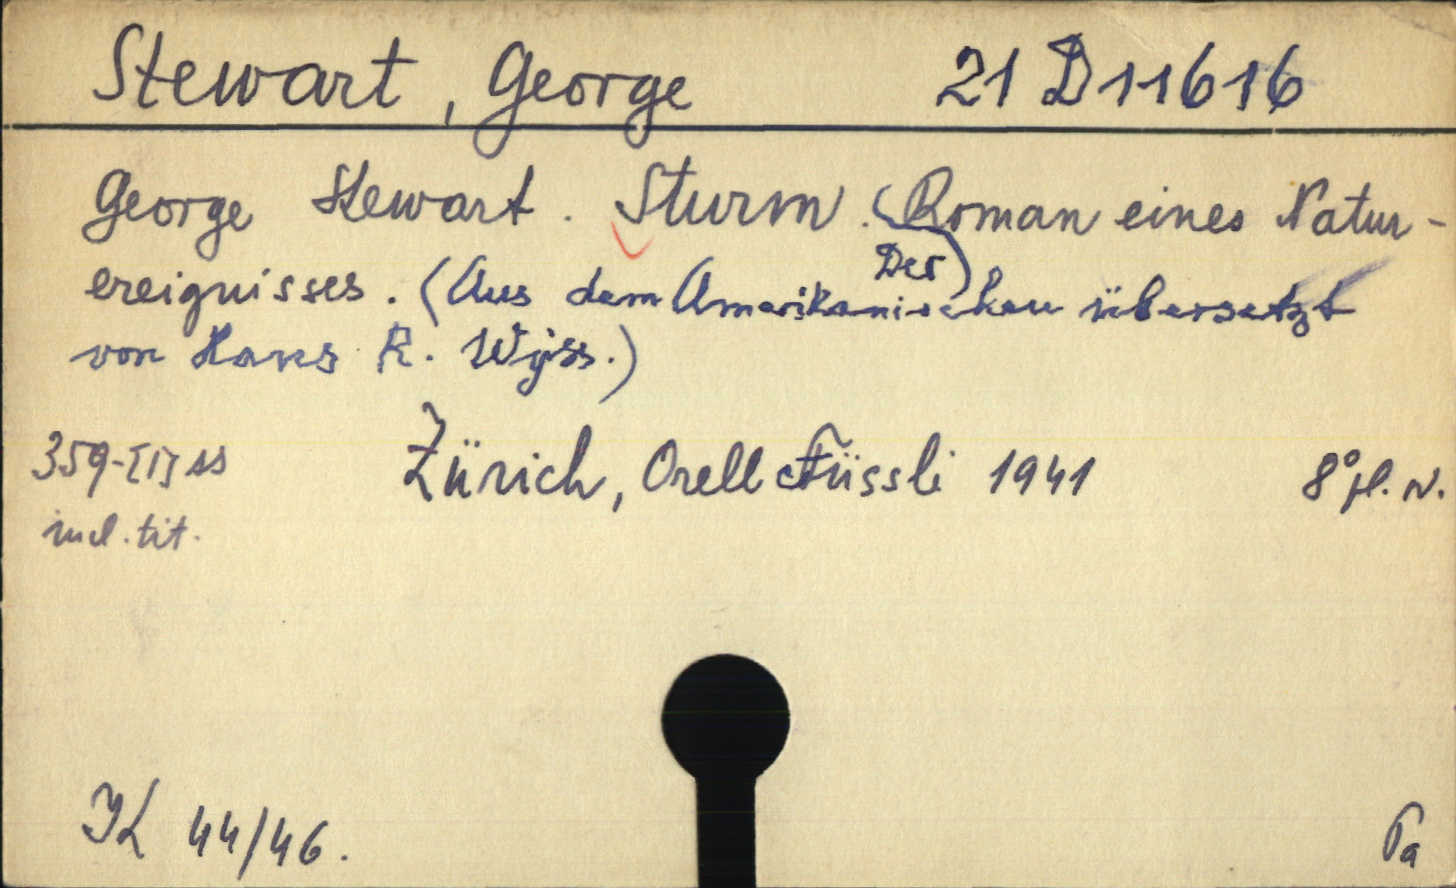 Stewart, George 21 D11616
George Stewart. Sturm. (Roman eines Natur-
Der)
ereignisses. (Aus dem Amerikanischen übersetzt
von Hans R. Wyss.)
359-[1] ss Zürich, Orell Füssli 1941 8°
incl. tit.
44/46.